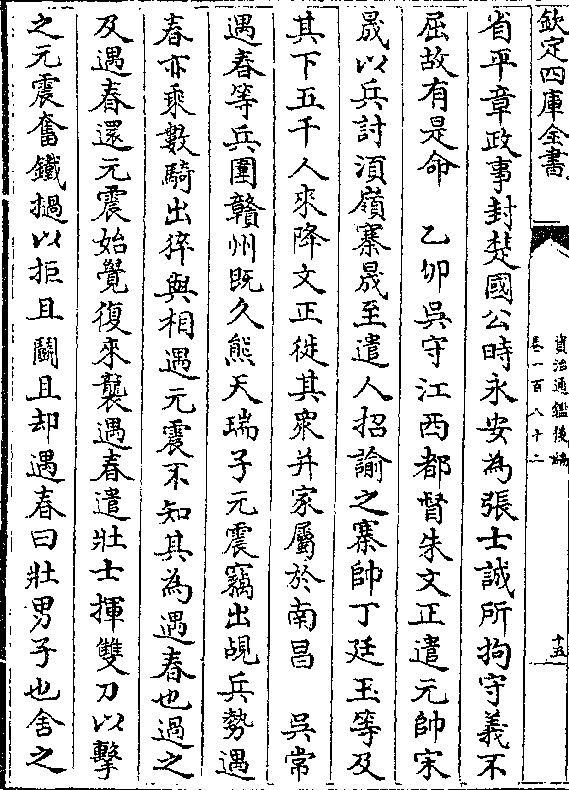 欽定四庫全書
資治通鑑後編
卷一百八十二
十五
省平章政事封楚國公時永安為張士誠所拘守義不
屈故有是命 乙卯吳守江西都督朱文正遣元帥宋
晟以兵討湏嶺寨晟至遣人招諭之寨帥丁廷玉等及
其下五千人來降文正徙其衆并家屬於南昌 吳常
遇春等兵圍贛州既久熊天瑞子元震竊出覘兵勢遇
春亦乘數騎出猝與相遇元震不知其為遇春也過之
及遇春還元震始覺復來襲遇春遣壯士揮雙刀以擊
之元震奮鐵撾以拒且鬭且却遇春曰壯男子也舍之